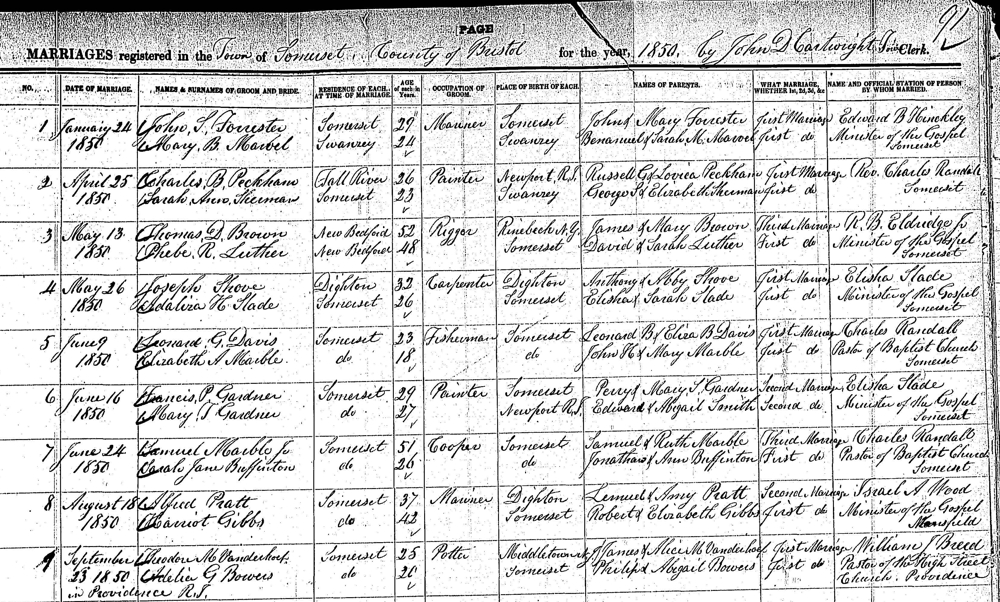 91
PAGE
MARRIAGES registered in the Town of Somerset, County of Bristol for the year, 1850. by John D Cartwright, Clerk.
NO. DATE OF MARRIAGE. NAMES & SURNAMES OF GROOM AND BRIDE. RESIDENCE OF EACH AT TIME OF MARRIAGE. AGE of each in Years. OCCUPATION OF GROOM. PLACE OF BIRTH OF EACH. NAMES OF PARENTS. WHAT MARRIAGE, WHETHER 1st, 2d, 3d, &c NAME AND OFFICIAL STATION OF PERSON BY WHOM MARRIED.
1 January 24 John S. Forrester Somerset 29 Mariner Somerset John & Mary Forrester First Marriage Edward B Hinckley
1850 Mary B. Marvel Swanzey 24 Swanzey Benanuel & Sarah M. Marvel first do Minister of the Gospel
Somerset
2 April 25 Charles B. Peckham Fall River 26 Painter Newport, R.I. Russell G & Lovica Peckham First Marriage Rev. Charles Randall
1850 Sarah Ann Sherman Somerset 23 Swanzey George S & Elizabeth Sherman first do Somerset
3 May 13 Thomas D. Brown New Bedford 52 Rigger Rinebeck N.Y. James & Mary Brown Third Marriage R. B. Eldridge Jr
1850 Phebe R. Luther New Bedford 48 Somerset David & Sarah Luther First do Minister of the Gospel
Somerset
4 May 26 Joseph Shove Dighton 32 Carpenter Dighton Anthony & Abby Shove First Marriage Elisha Slade
1850 Adaliza H. Slade Somerset 26 Somerset Elisha & Sarah Slade first do Minister of the Gospel
Somerset
5 June 9 Leonard G. Davis Somerset 23 Fisherman Somerset Leonard B & Eliza B Davis First Marriage Charles Randall
1850 Elizabeth A Marble do 18 do John H & Mary Marble first do Pastor of Baptist Church
Somerset
6 June 16 Francis P. Gardner Somerset 29 Painter Somerset Perry & Mary S. Gardner Second Marriage Elisha Slade
1850 Mary S Gardner do 27 Newport R.I. Edward & Abigail Smith Second do Minister of the Gospel
Somerset
7 June 24 Samuel Marble Jr Somerset 51 Cooper Somerset Samuel & Ruth Marble Third Marriage Charles Randall
1850 Sarah Jane Buffinton do 26 do Jonathan & Ann Buffinton First do Pastor of Baptist Church
Somerset
8 August 18 Alfred Pratt Somerset 37 Mariner Dighton Lemuel & Amy Pratt Second Marriage Israel A Wood
1850 Harriot Gibbs do 42 Somerset Robert & Elizabeth Gibbs first do Minister of the Gospel
Mansfield
9 September Theodore M. Vanderhoef Somerset 25 Potter Middletown James & Alice M. Vanderhoef First Marriage William J Breed
23 1850 Adelia G Bowers do 20 Somerset Philip & Abigail Bowers first do Pastor of the High Street
in Providence R.I. Church. Providence